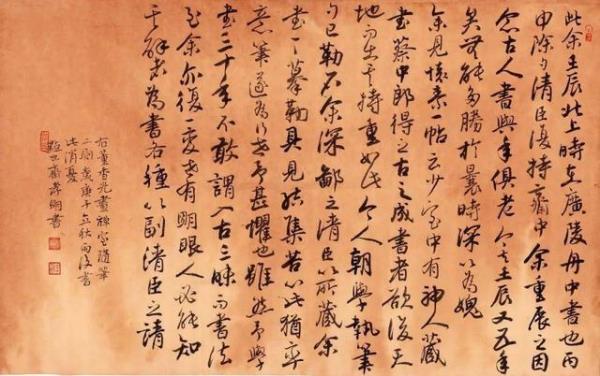 此余壬辰北上時在廣陵舟中書也丙
申除夕清臣復持齋中余重展之因
念古人書與年俱老今去壬辰又五年
矣無能多勝於曩時深以為媿
余見懷素一帖云少室中有神人藏
書蔡中郎得之古之成書者欲後天
地而出其持重如此今人朝學執筆
夕已勒石余深鄙之清臣以所藏余
書一一摹勒具見結集苦心此猶率
意筆遂為行世予甚懼也雖然予學
書三十年不敢謂入古三昧而書法
至余亦復一變世有明眼人必能知
其解者為書各種以副清臣之請
右董香光畫禪室隨筆
二則歲庚子立秋後書
此消憂